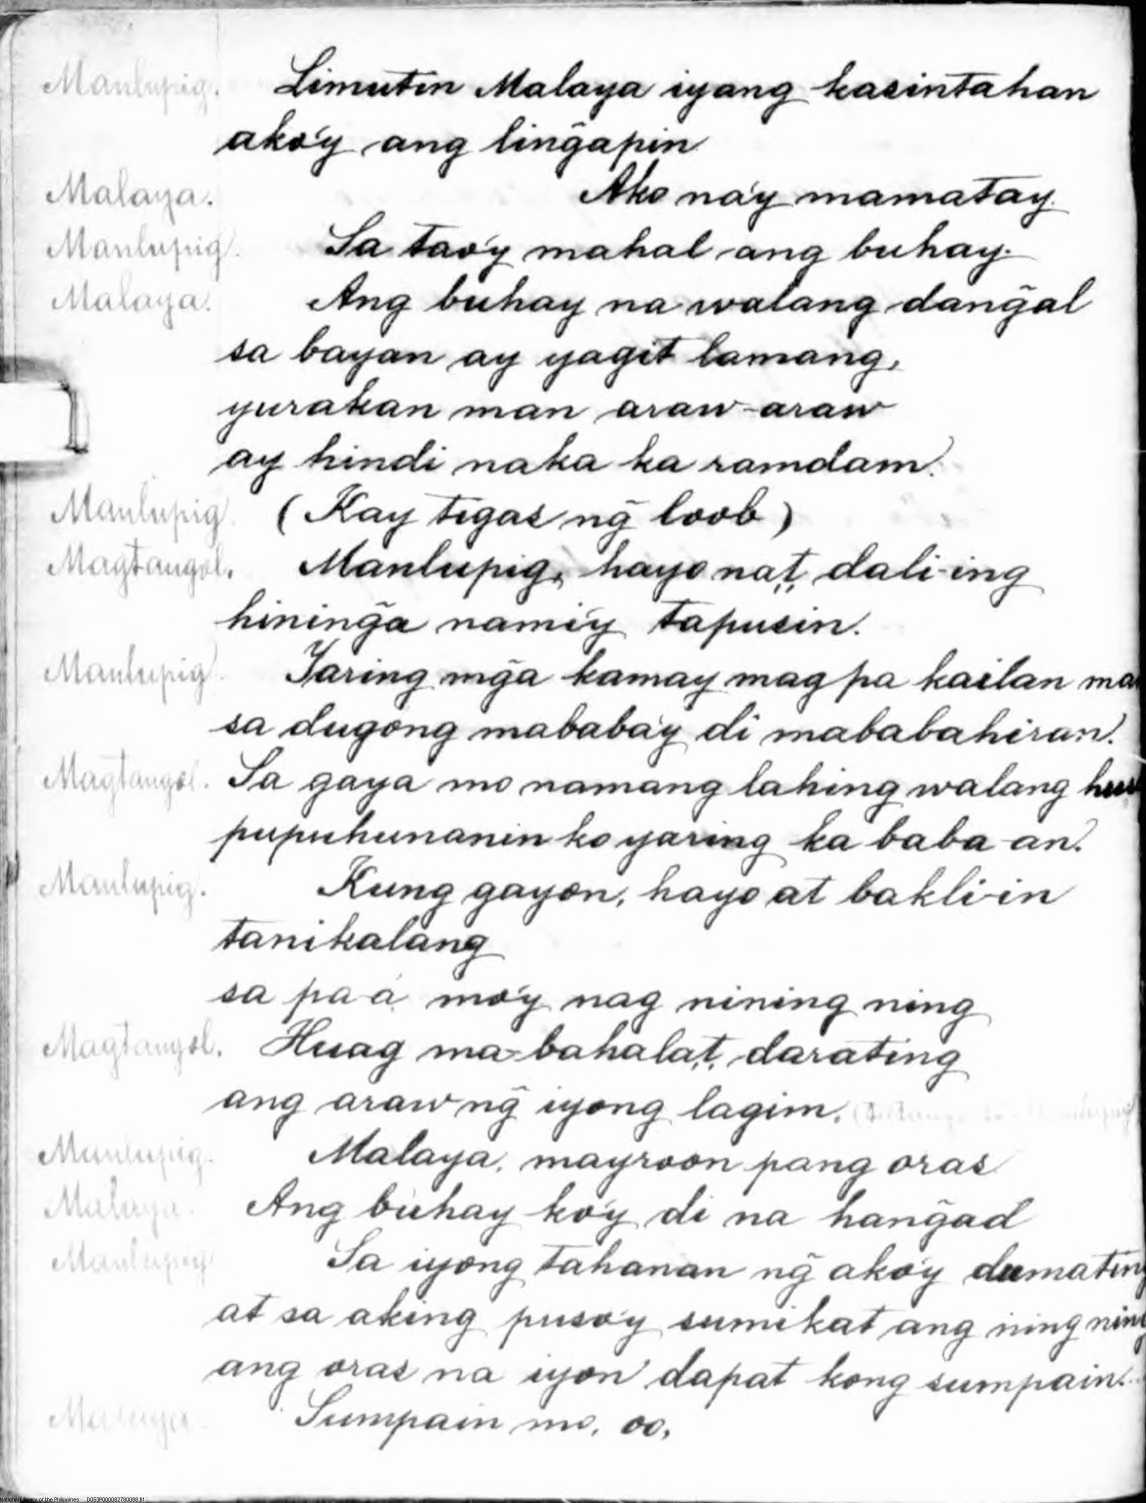 Manlupig. Limutin Malaya iyang kasintahan
ako'y ang lin̄gapin
Malaya. Ako na'y mamatay.
Manlupig. Sa tao'y mahal ang buhay.
Malaya. Ang buhay na walang dan̄gal
sa bayan ay yagit lamang,
yurakan man araw-araw
ay hindi naka ka ramdam.
Manlupig. (Kay tigas ng̃ loob)
Magtangol. Manlupig, hayo na't, dali-ing
hinin̄ga nami'y tapusin.
Manlupig. Yaring mg̃a kamay mag pa kailan
sa dugong mababa'y di mababahiran.
Magtangol. Sa gaya mo namang lahing walang
pupuhunanin ko yaring ka baba-an.
Manlupig. Kung gayon, hayo at bakli-in
tanikalang
sa pa-a mo'y nag nining ning
Magtangol. Huag ma-bahala't, darating
ang araw ng̃ iyong lagim.
Manlupig. Malaya, mayroon pang oras
Malaya. Ang buhay ko'y di na han̄gad
Manlupig Sa iyong tahanan ng̃ ako'y dumating
at sa aking puso'y sumikat ang ning ning
ang oras na iyon dapat kong sumpain.
Malaya. Sumpain mo, oo,
National Library of the Philippines